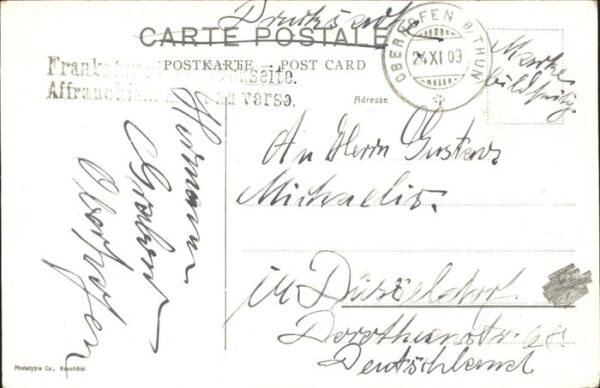 Drucksache
CARTE POSTALE
POSTKARTE — POST CARD
Frankatur Rückseite.
Affranchissement au verso.
OBERHOFEN B/THUN
24 XI 09
Marke
bildseitig
Adresse
An Herrn Gustav
Michaelis.
in Düsseldorf
Dorotheenstr. 68
Deutschland
Hermann
Oberhofen
Phototypie Co., Neuchâtel